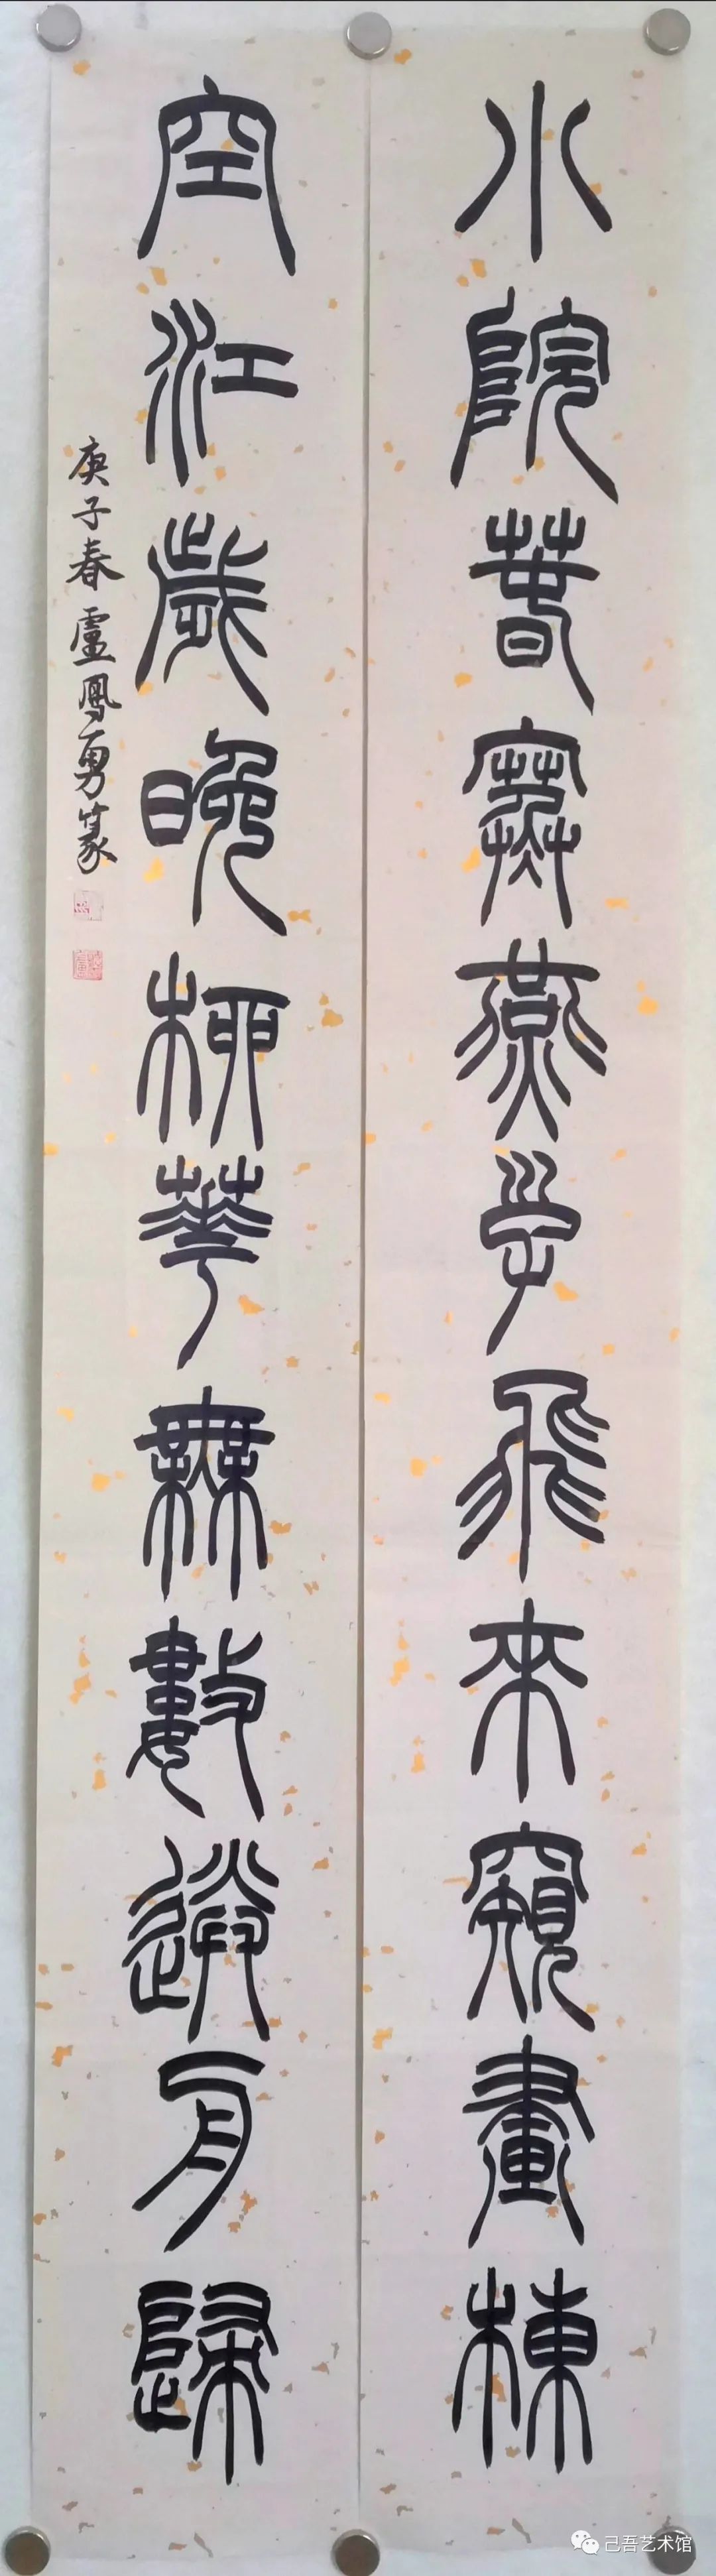 小院春寒燕子飛來窺畫棟
空江歲晚柳華無數送舟歸
庚子春盧鳳勇篆
己吾艺术馆